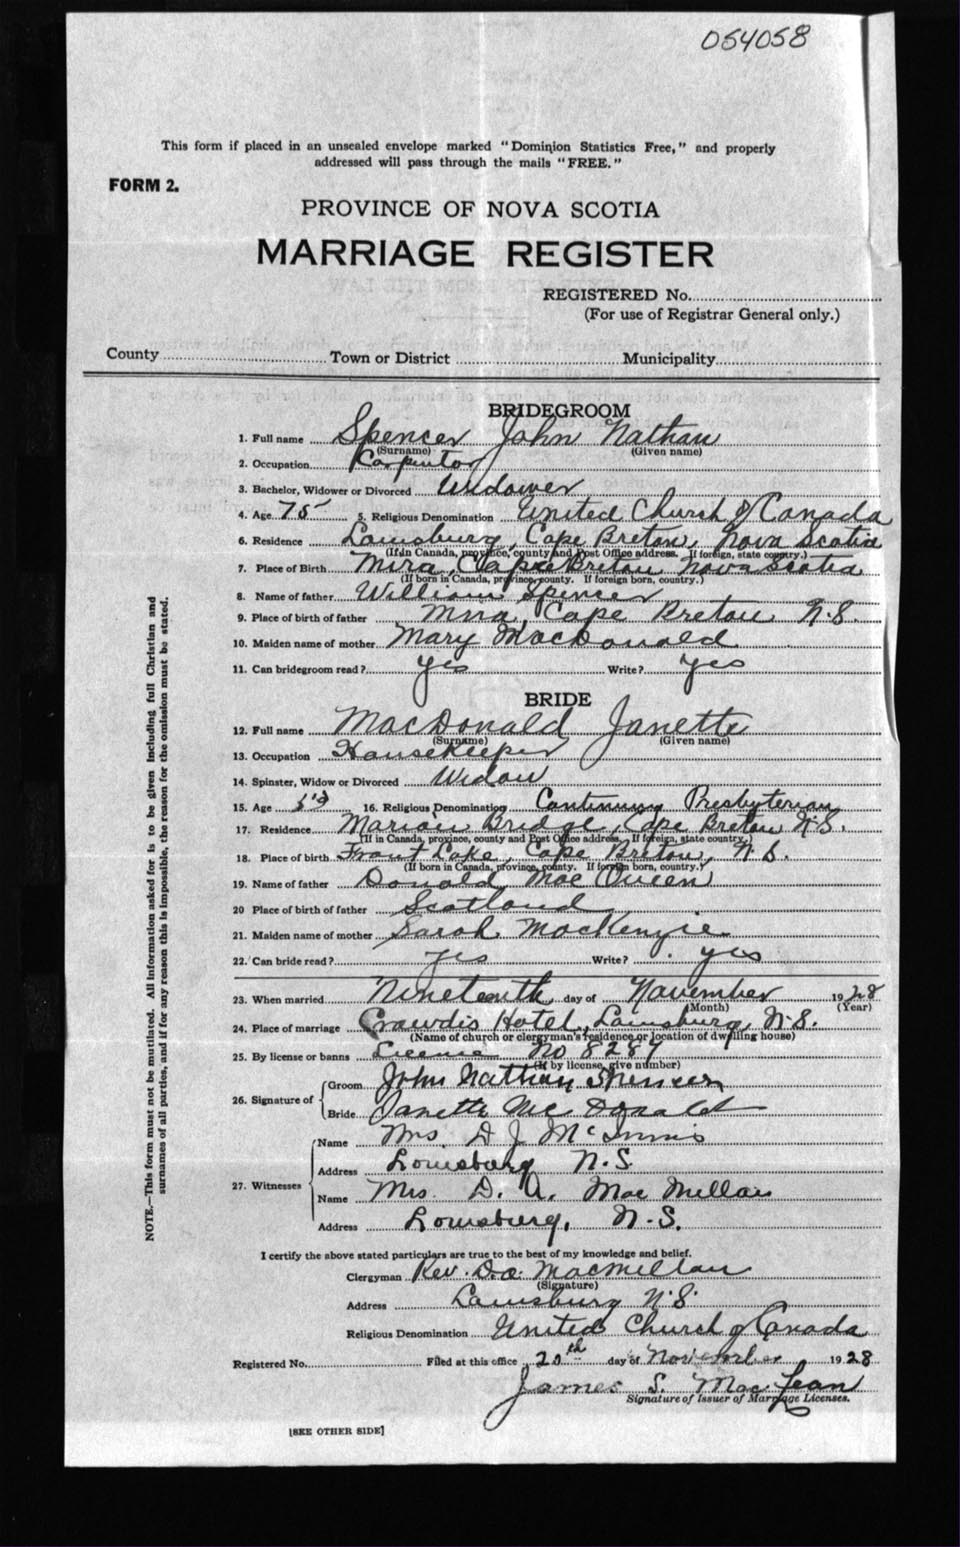 054058
This form if placed in an unsealed envelope marked "Dominion Statistics Free," and properly
addressed will pass through the mails "FREE."
FORM 2.
PROVINCE OF NOVA SCOTIA
MARRIAGE REGISTER
REGISTERED No.
(For use of Registrar General only.)
County Town or District Municipality
BRIDEGROOM
1. Full name Spencer John Nathan
(Surname) (Given name)
2. Occupation Carpentor
3. Bachelor, Widower or Divorced Widower
4. Age 75 5. Religious Denomination United Church of Canada
6. Residence Louisburg, Cape Breton, Nova Scotia
(If in Canada, province, county and Post Office address. If foreign, state country.)
7. Place of Birth Mira, Cape Breton Nova Scotia
(If born in Canada, province, county. If foreign born, country.)
8. Name of father William Spencer
9. Place of birth of father Mira, Cape Breton N.S.
10. Maiden name of mother Mary MacDonald
11. Can bridegroom read? yes Write? yes
BRIDE
12. Full name MacDonald Janette
(Surname) (Given name)
13. Occupation Housekeeper
14. Spinster, Widow or Divorced Widow
15. Age 16. Religious Denomination Continuing Presbyterian
17. Residence Marion Bridge, Cape Breton N.S.
(If in Canada, province, county and Post Office address. If foreign, state country.)
18. Place of birth Lake, Cape Breton, N.S.
(If born in Canada, province, county. If foreign born, country.)
19. Name of father Donald Mac Queen
20 Place of birth of father Scotland
21. Maiden name of mother Sarah MacKenzie
22. Can bride read? yes Write? yes
23. When married Nineteenth day of November 1928
(Month) (Year)
24. Place of marriage Crowdis Hotel, Louisburg, N.S.
(Name of church or clergyman's residence or location of dwelling house)
25. By license or banns License No 8287
(If by license, give number)
26. Signature of Groom John Nathan Spencer
Bride Janette Mc Donald
27. Witnesses Name Mrs. D J McInnis
Address Louisburg N.S.
Name Mrs. D. A. Mac Millan
Address Louisburg, N.S.
I certify the above stated particulars are true to the best of my knowledge and belief.
Clergyman Rev. D.A. Macmillan
(Signature)
Address Louisburg N.S.
Religious Denomination United Church of Canada
Registered No. Filed at this office 20th day of November 1928
James S. MacLean
Signature of Issuer of Marriage Licenses.
[SEE OTHER SIDE]
NOTE.—This form must not be mutilated. All information asked for is to be given including full Christian and
surnames of all parties, and if for any reason this is impossible, the reason for the omission must be stated.